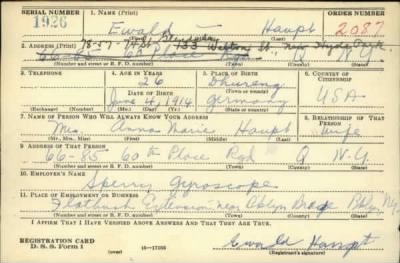 SERIAL NUMBER 1. NAME (Print) ORDER NUMBER
1926 Ewald Haupt 2087
78-57-74 St Glendale 133 Walton St. New Hyde Park
2. ADDRESS (Print)
66-85 60th Place Rgd Q N.Y.
(Number and street or R. F. D. number) (Town) (County) (State)
3. TELEPHONE 4. AGE IN YEARS 5. PLACE OF BIRTH 6. COUNTRY OF CITIZENSHIP
26
DATE OF BIRTH (Town or county)
June 4, 1914 Germany USA
(Exchange) (Number) (Mo.) (Day) (Yr.) (State or country)
7. NAME OF PERSON WHO WILL ALWAYS KNOW YOUR ADDRESS 8. RELATIONSHIP OF THAT PERSON
Mrs. Anna Marie Haupt wife
(Mr., Mrs., Miss) (First) (Middle) (Last)
9. ADDRESS OF THAT PERSON
66-85 60th Place Rgd Q N.Y.
(Number and street or R. F. D. number) (Town) (County) (State)
10. EMPLOYER'S NAME
Sperry Gyroscope
11. PLACE OF EMPLOYMENT OR BUSINESS
Flatbush Extension near Bklyn Bridge Bklyn, NY
(Number and street or R. F. D. number) (Town) (County) (State)
I AFFIRM THAT I HAVE VERIFIED ABOVE ANSWERS AND THAT THEY ARE TRUE.
REGISTRATION CARD
D. S. S. Form 1 16-17105 Ewald Haupt
(Registrant's signature)